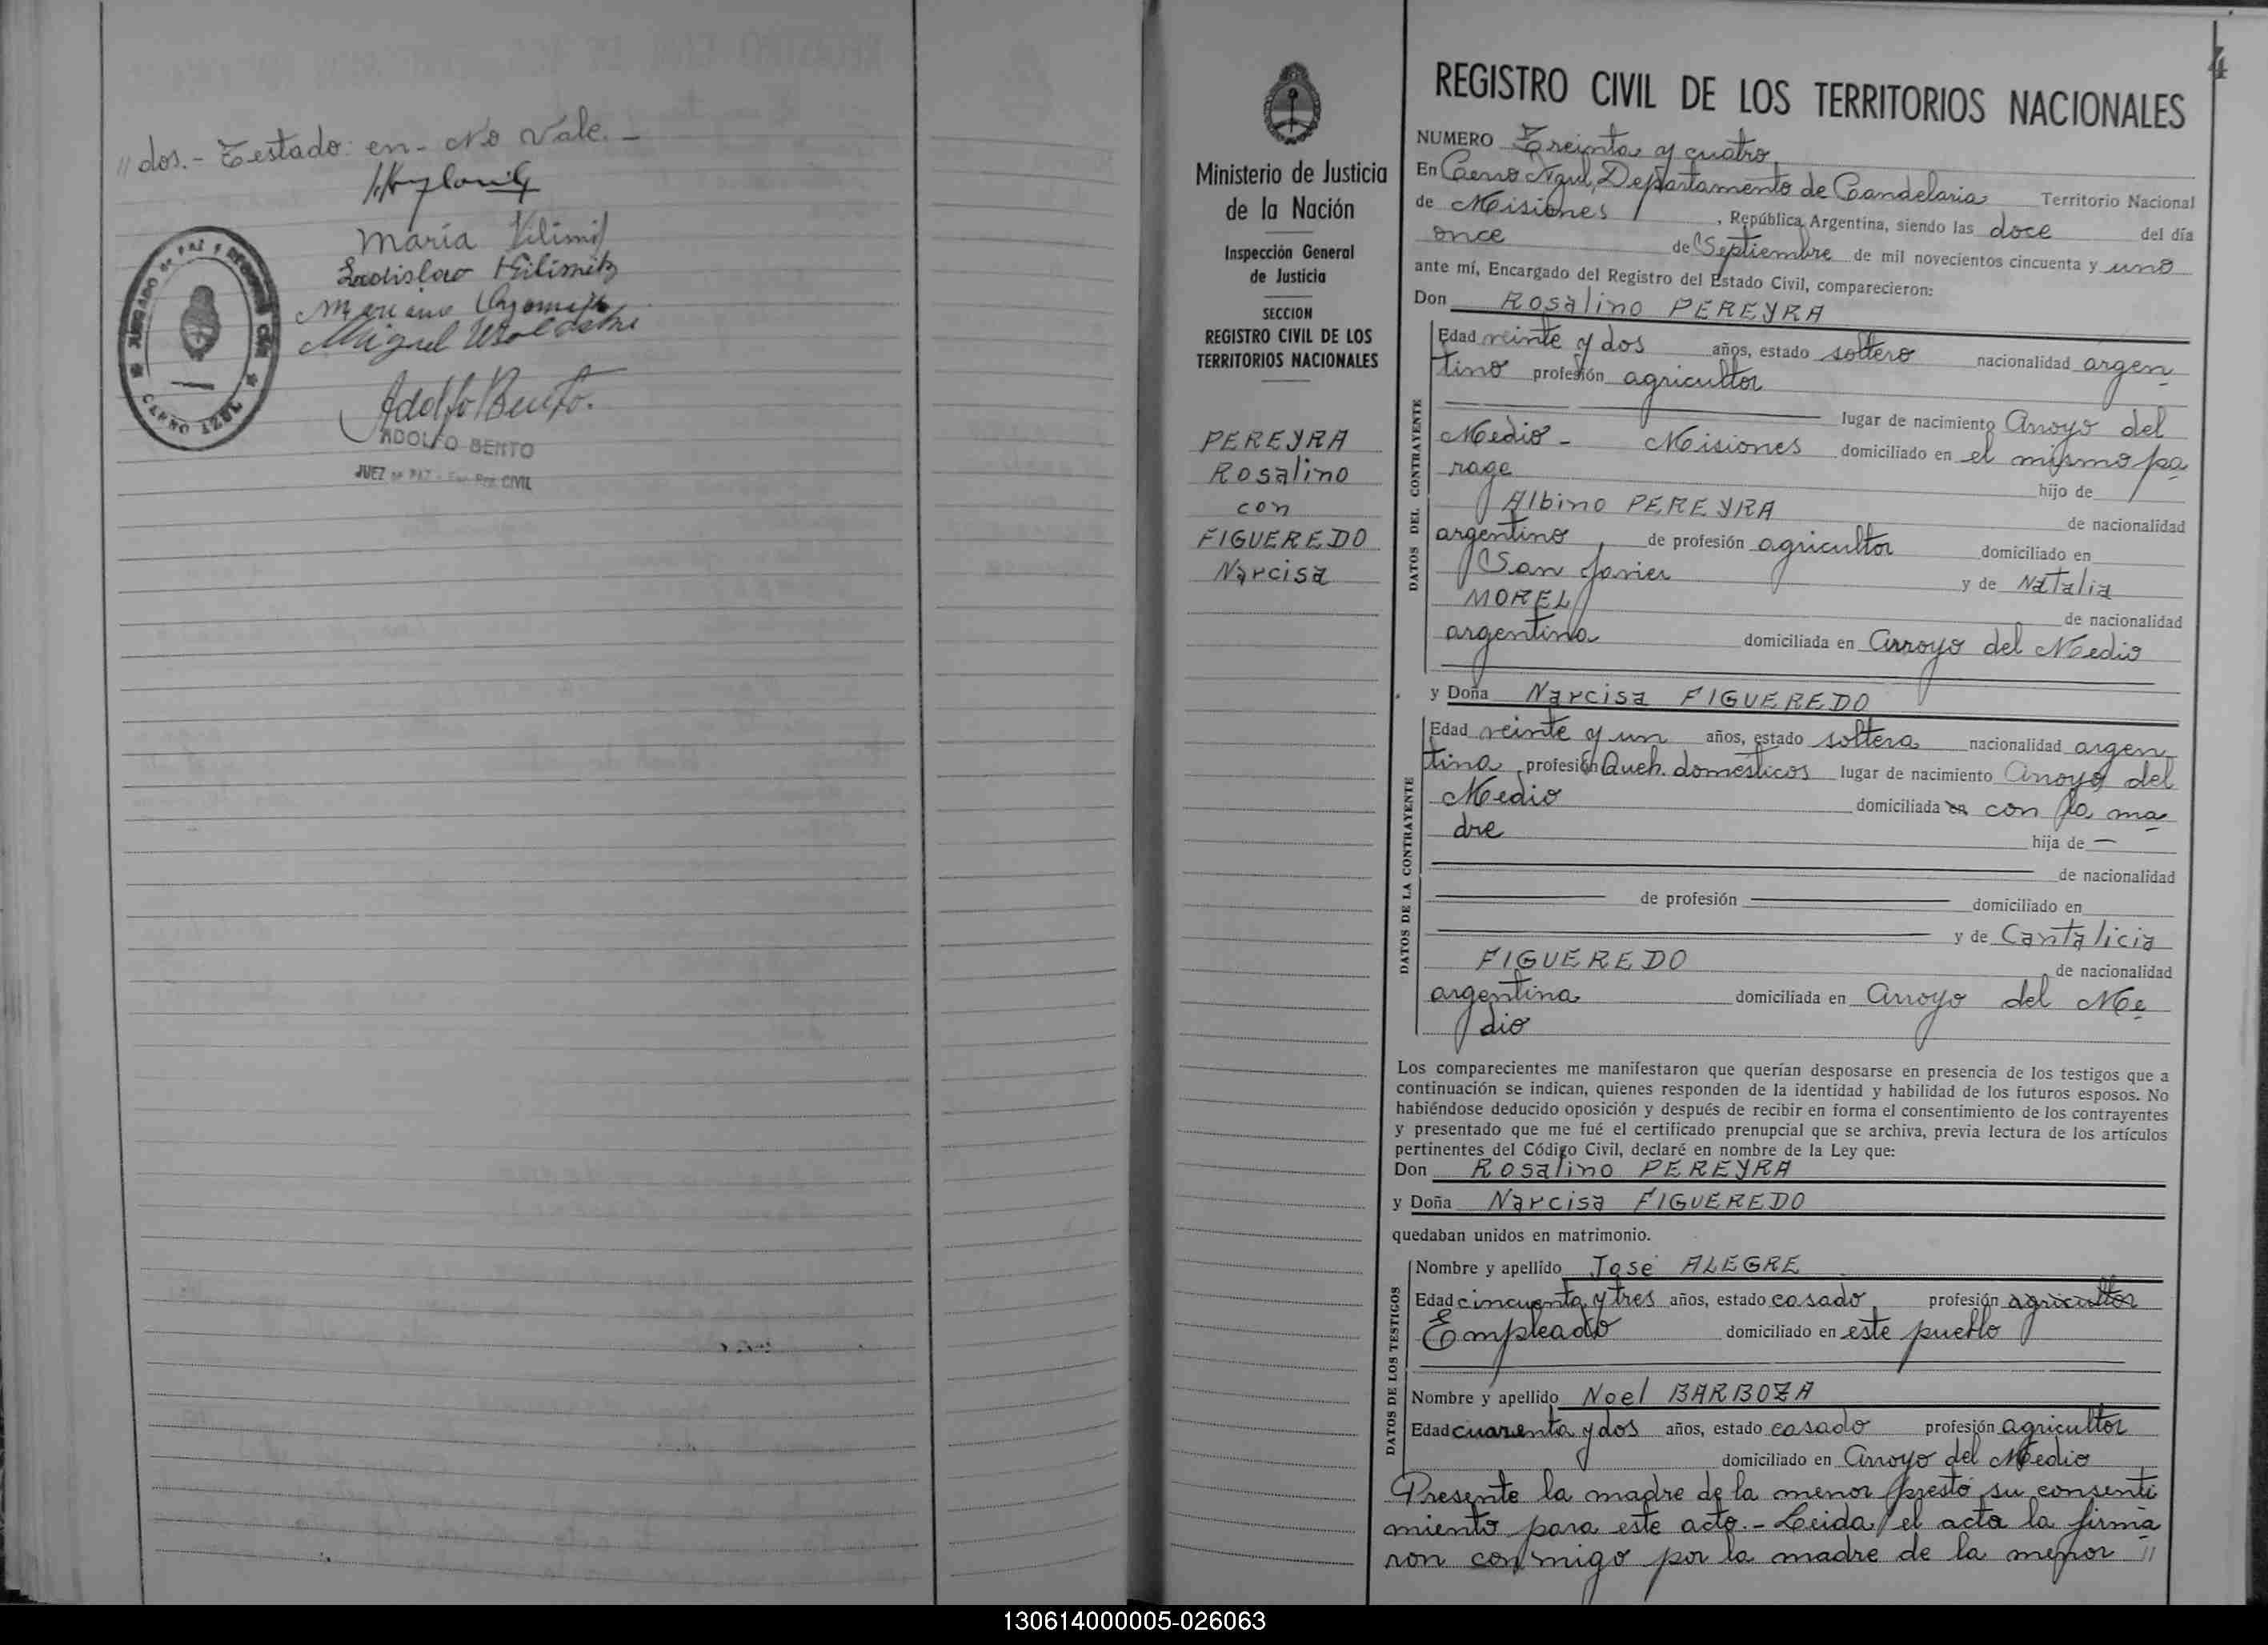 // dos.- Testado: en- No Vale.-
María
Ladislao
Miguel
Adolfo Bento.
ADOLFO BENTO
JUEZ DE PAZ - CIVIL
JUZGADO DE PAZ Y
CERRO AZUL
4
Ministerio de Justicia
de la Nación
Inspección General
de Justicia
SECCION
REGISTRO CIVIL DE LOS
TERRITORIOS NACIONALES
PEREYRA
Rosalino
con
FIGUEREDO
Narcisa
REGISTRO CIVIL DE LOS TERRITORIOS NACIONALES
NUMERO Treinta y cuatro
En Cerro Azul, Departamento de Candelaria Territorio Nacional
de Misiones, República Argentina, siendo las doce del día
once de Septiembre de mil novecientos cincuenta y uno
ante mí, Encargado del Registro del Estado Civil, comparecieron:
Don Rosalino PEREYRA
DATOS DEL CONTRAYENTE
Edad veinte y dos años, estado soltero nacionalidad argen
tino profesión agricultor
lugar de nacimiento Arroyo del
Medio - Misiones domiciliado en el mismo pa
rage hijo de
Albino PEREYRA de nacionalidad
argentino, de profesión agricultor domiciliado en
San Javier y de Natalia
MOREL de nacionalidad
argentina domiciliada en Arroyo del Medio
y Doña Narcisa FIGUEREDO
DATOS DE LA CONTRAYENTE
Edad veinte y un años, estado soltera nacionalidad argen
tina profesión Queh. domésticos lugar de nacimiento Arroyo del
Medio domiciliada en con la ma
dre hija de —
de nacionalidad
de profesión domiciliado en
y de Cantalicia
FIGUEREDO de nacionalidad
argentina domiciliada en Arroyo del Me
dio
Los comparecientes me manifestaron que querían desposarse en presencia de los testigos que a
continuación se indican, quienes responden de la identidad y habilidad de los futuros esposos. No
habiéndose deducido oposición y después de recibir en forma el consentimiento de los contrayentes
y presentado que me fué el certificado prenupcial que se archiva, previa lectura de los artículos
pertinentes del Código Civil, declaré en nombre de la Ley que:
Don Rosalino PEREYRA
y Doña Narcisa FIGUEREDO
quedaban unidos en matrimonio.
DATOS DE LOS TESTIGOS
Nombre y apellido José ALEGRE
Edad cincuenta y tres años, estado casado profesión agricultor
Empleado domiciliado en este pueblo
Nombre y apellido Noel BARBOZA
Edad cuarenta y dos años, estado casado profesión agricultor
domiciliado en Arroyo del Medio
Presente la madre de la menor prestó su consenti
miento para este acto.- Leida el acta la firma
ron conmigo por la madre de la menor //
130614000005-026063